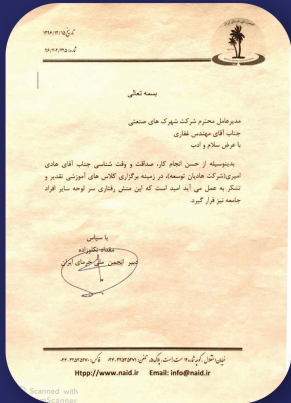 تاریخ: ۱۳۹۶/۱۲/۱۵
بسمه تعالی
مدیرعامل محترم شرکت شهرک های صنعتی
جناب آقای مهندس غفاری
با عرض سلام و ادب
بدینوسیله از حسن انجام کار، صداقت و وقت شناسی جناب آقای هادی
امیری(شرکت هادیان توسعه)، در زمینه برگزاری کلاس های آموزشی تقدیر و
تشکر به عمل می آید امید است که این منش رفتاری سر لوحه سایر افراد
جامعه نیز قرار گیرد.
با سپاس
دبیر انجمن ملی خرمای ایران
Htpp://www.naid.ir Email: info@naid.ir
Scanned with